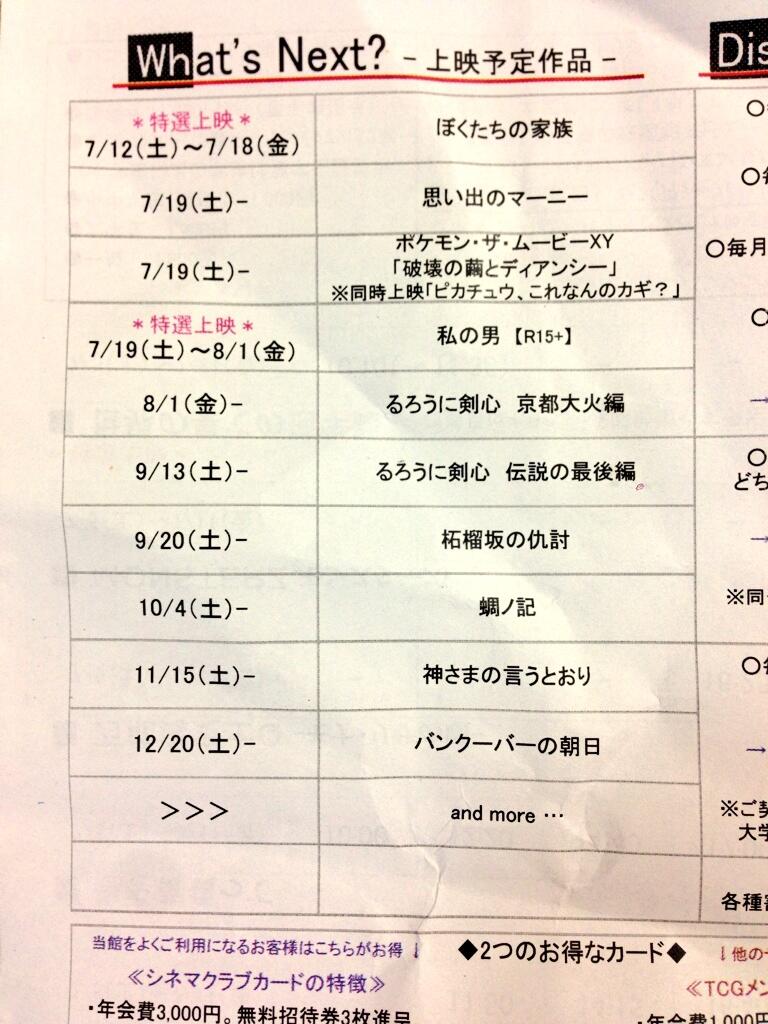 What's Next? - 上映予定作品 -
Dis
＊特選上映＊
7/12(土)～7/18(金)
ぼくたちの家族
7/19(土)-
思い出のマーニー
7/19(土)-
ポケモン・ザ・ムービーXY
「破壊の繭とディアンシー」
※同時上映「ピカチュウ、これなんのカギ？」
＊特選上映＊
7/19(土)～8/1(金)
私の男 【R15+】
8/1(金)-
るろうに剣心 京都大火編
9/13(土)-
るろうに剣心 伝説の最後編
9/20(土)-
柘榴坂の仇討
10/4(土)-
蜩ノ記
11/15(土)-
神さまの言うとおり
12/20(土)-
バンクーバーの朝日
>>>
and more …
○毎月
→
○
どち
→
※同
→
※ご契
大学
各種
当館をよくご利用になるお客様はこちらがお得↓
◆2つのお得なカード◆
↓他の
≪シネマクラブカードの特徴≫
≪TCGメン
・年会費3,000円。無料招待券3枚進呈
・年会費1,000円